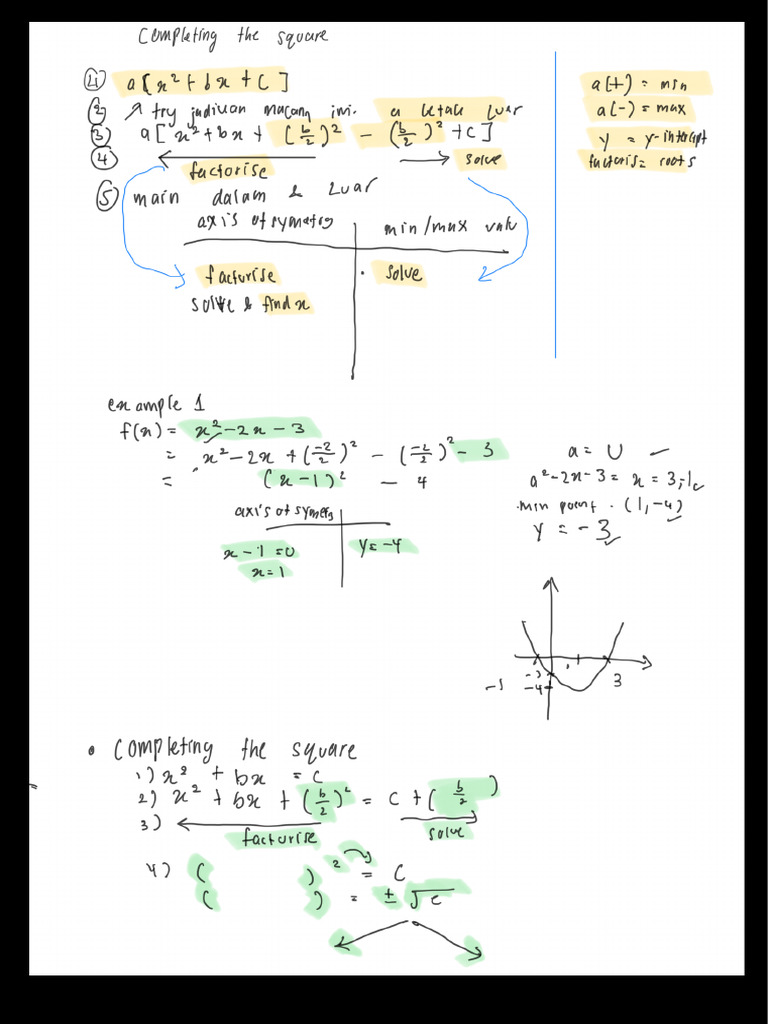 Completing the square
① a[x²+bx+c]
② ↗ try jadikan macam ini. a letak luar
③ a[x²+bx+(b/2)²-(b/2)²+c]
④ factorise solve
⑤ main dalam & luar
axis of symetry min/max valu
factorise solve
solve & find x
a(+) = min
a(-) = max
y = y-intercept
factoris = roots
example 1
f(x) = x²-2x-3
= x²-2x+(-2/2)²-(-2/2)²-3
= (x-1)² - 4
axis of symetry
x-1=0 y=-4
x=1
a = U ✓
a²-2x-3 = x = 3,-1 ✓
min point . (1,-4) ✓
y = -3 ✓
-3
-1 -4 3
• Completing the square
1) x² + bx = c
2) x² + bx + (b/2)² = c + (b/2)
3) factorise solve
4) ( )² = c
( ) = ±√c